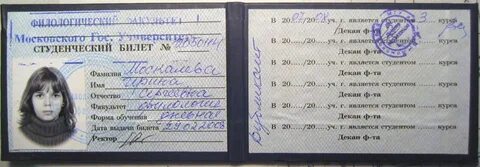 ФИЛОЛОГИЧЕСКИЙ ФАКУЛЬТЕТ
Московского Гос. Университета
СТУДЕНЧЕСКИЙ БИЛЕТ №
Фамилия Москалева
Имя Ирина
Отчество
Факультет филологич
Форма обучения дневная
Дата выдачи билета
Ректор
В 2007/2008 уч. г. является студентом 3 курса
Декан ф-та
В 20...../20..... уч. г. является студентом ........ курса
Декан ф-та
В 20...../20..... уч. г. является студентом ........ курса
Декан ф-та
В 20...../20..... уч. г. является студентом ........ курса
Декан ф-та
В 20...../20..... уч. г. является студентом ........ курса
Декан ф-та
В 20...../20..... уч. г. является студентом ........ курса
Декан ф-та